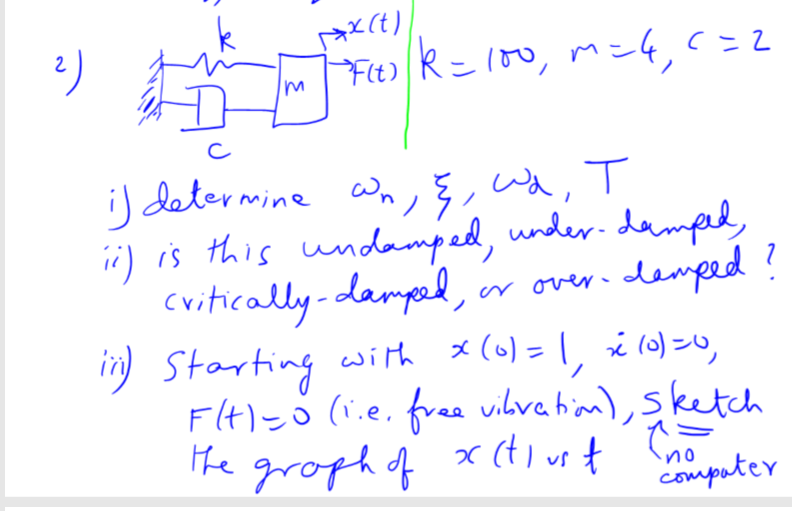 2) k x(t)
F(t) k = 100, m = 4, c = 2
m
c
i) determine ωn, ξ, ωd, T
ii) is this undamped, under-damped,
critically-damped, or over-damped ?
iii) Starting with x(0) = 1, ẋ(0) = 0,
F(t) = 0 (i.e. free vibration), sketch
the graph of x(t) vs t no
computer